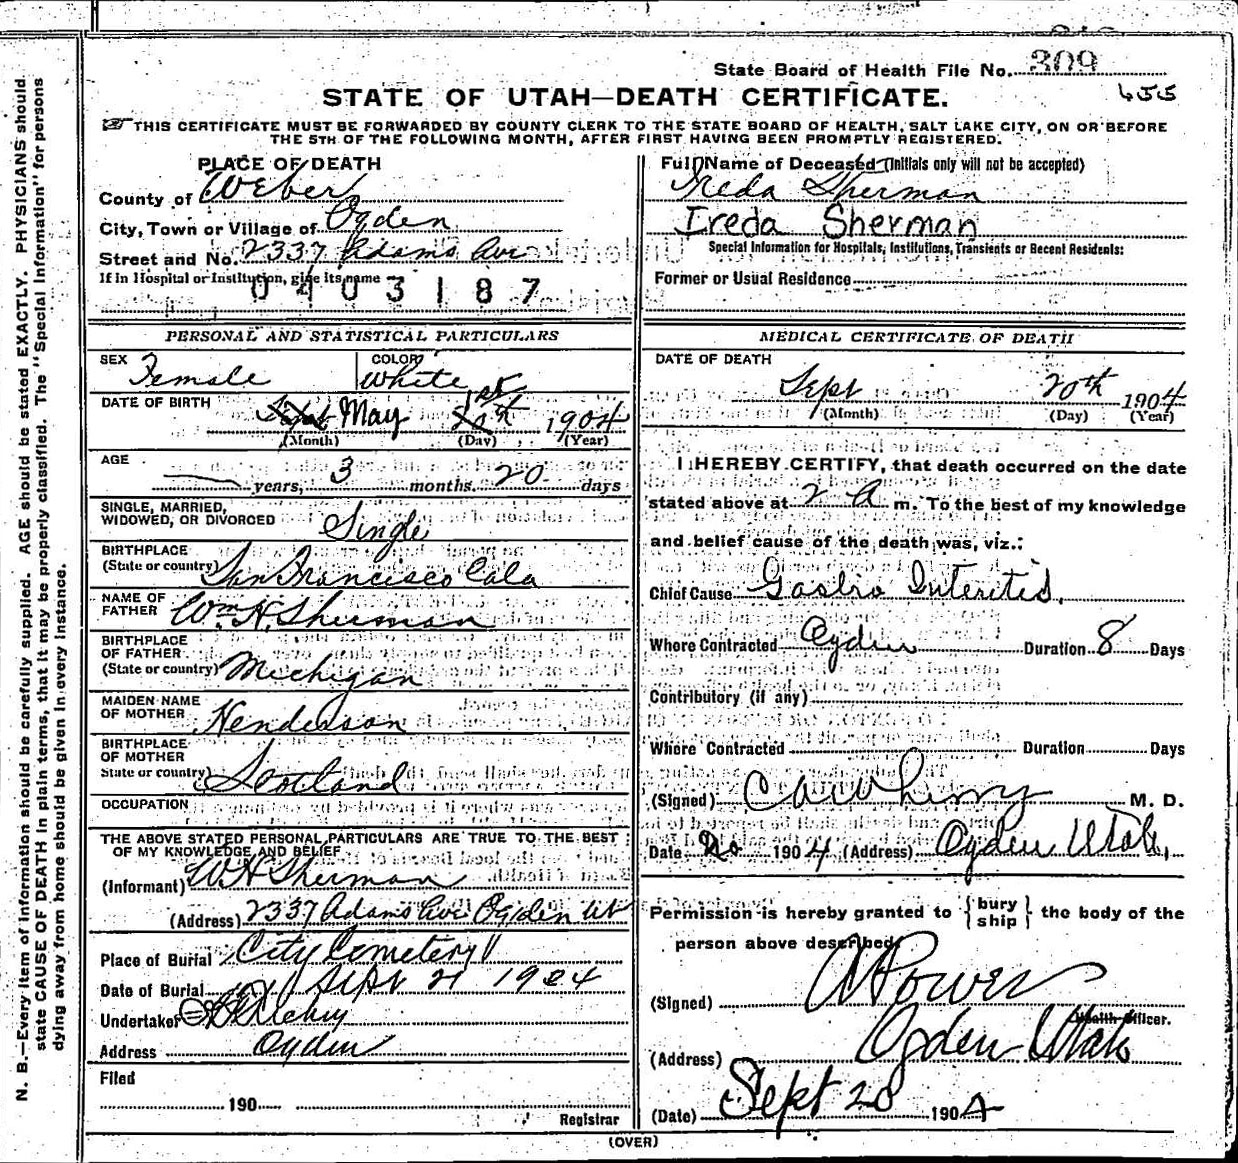 State Board of Health File No. 309
STATE OF UTAH—DEATH CERTIFICATE.
655
THIS CERTIFICATE MUST BE FORWARDED BY COUNTY CLERK TO THE STATE BOARD OF HEALTH, SALT LAKE CITY, ON OR BEFORE
THE 5TH OF THE FOLLOWING MONTH, AFTER FIRST HAVING BEEN PROMPTLY REGISTERED.
PLACE OF DEATH
County of Weber
City, Town or Village of Ogden
Street and No. 2337 Adams Ave
If in Hospital or Institution, give its name
0403187
Full Name of Deceased (Initials only will not be accepted)
Ireda Sherman
Ireda Sherman
Special Information for Hospitals, Institutions, Transients or Recent Residents:
Former or Usual Residence
PERSONAL AND STATISTICAL PARTICULARS
SEX Female COLOR White
DATE OF BIRTH May 1st 1904
(Month) (Day) (Year)
AGE
years, 3 months. 20 days
SINGLE, MARRIED,
WIDOWED, OR DIVORCED Single
BIRTHPLACE
(State or country) San Francisco Cala
NAME OF
FATHER Wm H. Sherman
BIRTHPLACE
OF FATHER
(State or country) Michigan
MAIDEN NAME
OF MOTHER Henderson
BIRTHPLACE
OF MOTHER
State or country) Scotland
OCCUPATION
THE ABOVE STATED PERSONAL PARTICULARS ARE TRUE TO THE BEST
OF MY KNOWLEDGE AND BELIEF
(Informant) W H Sherman
(Address) 2337 Adams Ave Ogden Ut
Place of Burial City Cemetery
Date of Burial Sept 21 1904
Undertaker
Address Ogden
Filed
190
Registrar
MEDICAL CERTIFICATE OF DEATH
DATE OF DEATH
Sept 20th 1904
(Month) (Day) (Year)
I HEREBY CERTIFY, that death occurred on the date
stated above at 2 a m. To the best of my knowledge
and belief cause of the death was, viz.:
Chief Cause Gastro Interitis.
Where Contracted Ogden Duration 8 Days
Contributory (if any)
Where Contracted Duration Days
(Signed) M. D.
Date 20 1904 (Address) Ogden Utah,
Permission is hereby granted to {bury
ship} the body of the
person above described
(Signed) A Power
Health Officer.
(Address) Ogden Utah
(Date) Sept 20 1904
(OVER)
N. B.—Every item of information should be carefully supplied. AGE should be stated EXACTLY. PHYSICIANS should
state CAUSE OF DEATH in plain terms, that it may be properly classified. The "Special Information" for persons
dying away from home should be given in every instance.